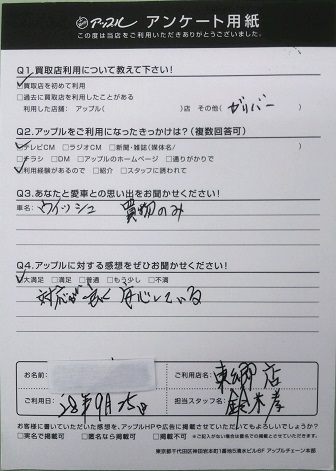 アップル アンケート用紙
この度は当店をご利用いただきありがとうございました。
Q1.買取店利用について教えて下さい!
□買取店を初めて利用
□過去に買取店を利用したことがある
利用した店舗: アップル( )店 その他( ガリバー )
Q2.アップルをご利用になったきっかけは?(複数回答可)
□テレビCM □ラジオCM □新聞・雑誌(媒体名/ )
□チラシ □DM □アップルのホームページ □通りがかりで
□利用経験があるので □紹介 □スタッフに誘われて
Q3.あなたと愛車との思い出をお聞かせください!
車名: ウイッシュ 買物のみ
Q4.アップルに対する感想をぜひお聞かせください!
□大満足 □満足 □普通 □もう少し □不満
対応が良く 安心している
お名前:
ご利用店名: 東郷店
ご利用日: 28年9月25日
担当スタッフ名: 鈴木孝
お客様に書いていただいた感想を、アップルHPや広告に掲載させていただいてもよろしいでしょうか?
□実名で掲載可 □匿名なら掲載可 □掲載不可
東京都千代田区神田岩本町1番地5清水ビル6F アップルチェーン本部